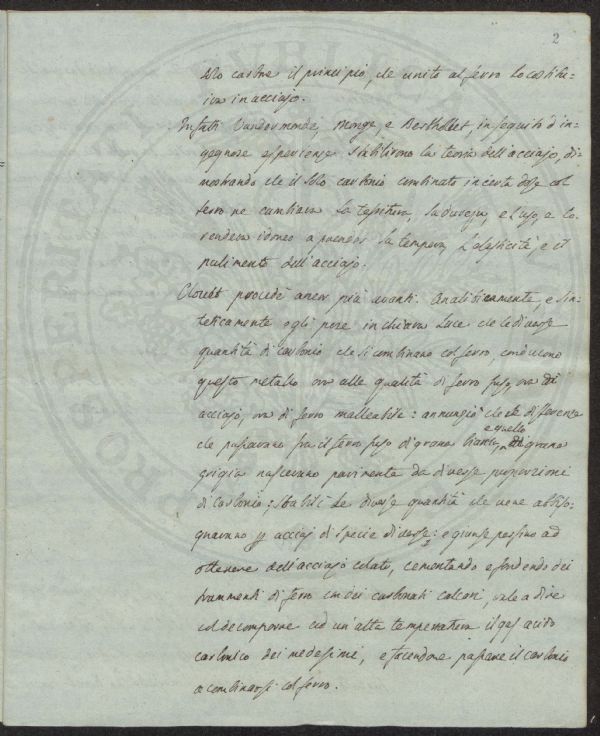 2
solo carbone il principio, che unito al ferro lo costitui-
iva in acciajo.
Infatti Vandermonde, Monge, e Berthollet, in seguito d'in-
gegnose esperienze stabilirono la teoria dell'acciajo, di-
mostrando che il solo carbonio combinato in certa dose col
ferro ne cambiava la tessitura, la durezza, e l'uso, e lo
rendeva idoneo a prender la tempera, l'elasticità, e il
pulimento dell'acciajo.
Clouet procedè ancor più avanti. Analiticamente, e sin-
teticamente egli pose in chiara luce che le diverse
quantità di carbonio che si combinano col ferro, conducono
questo metallo ora alle qualità di ferro fuso, ora di
acciajo, ora di ferro malleabile: annunziò che le differenze
che passavano fra il ferro fuso di grana bianca, e quello di grana
grigia nascevano parimente da diverse proporzioni
di carbonio: stabilì le diverse quantità che vene abbiso-
gnavano pr acciaj di specie diverse: e giunse persino ad
ottenere dell'acciajo colato, cementando e fondendo dei
frammenti di ferro con dei carbonati calcari, vale a dire
col decomporre ad un'alta temperatura il gas acido
carbonico dei medesimi, e facendone passare il carbonio
a combinarsi col ferro.